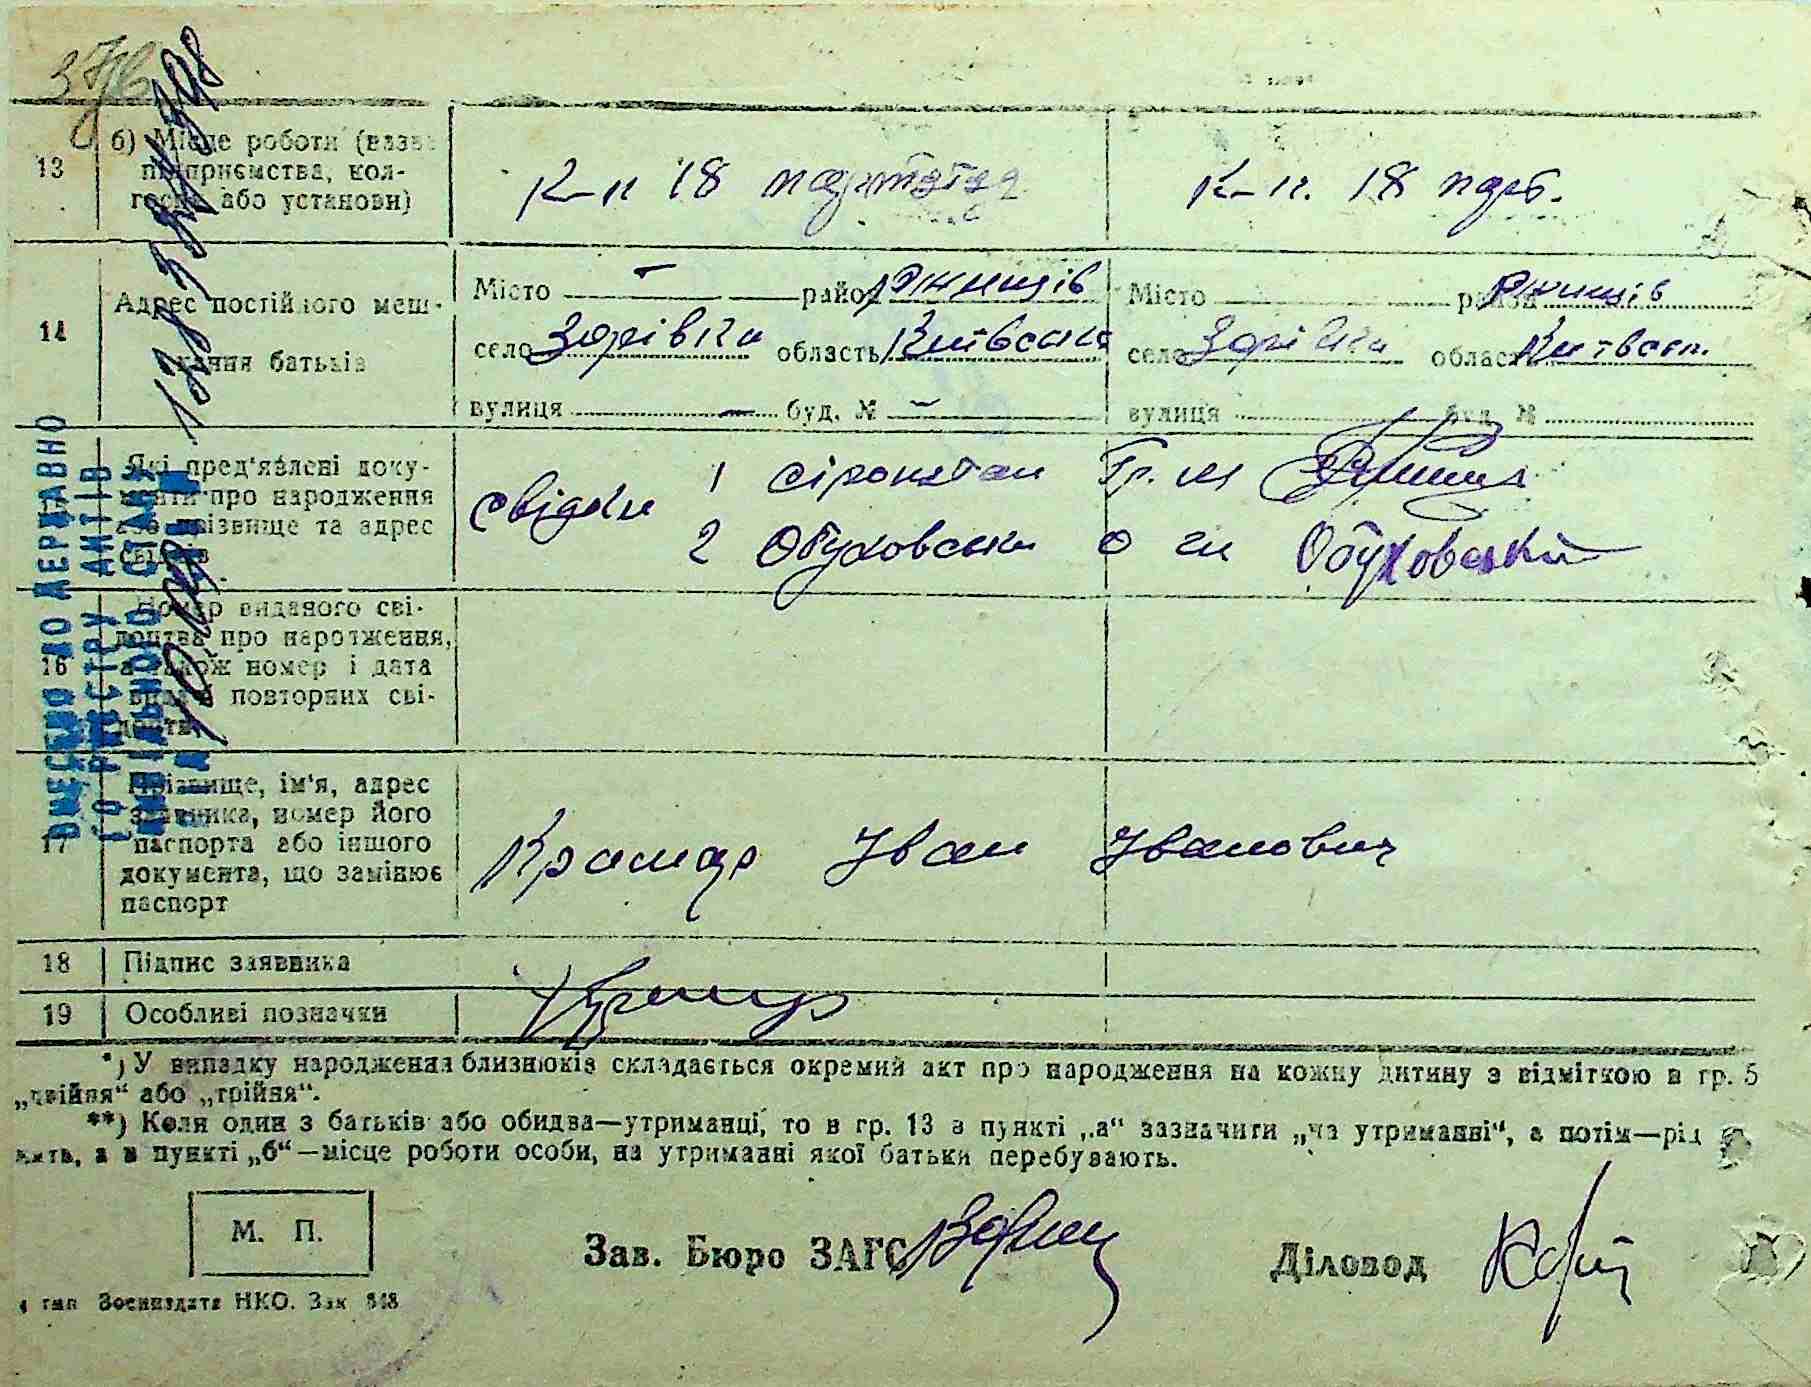 13
б) Місце роботи (назва
підприємства, кол-
госпу або установи)
К-п 18 партз'їзд
К-п. 18 парт.
14
Адрес постійного меш-
кання батьків
Місто — район Ржищів
село Зорівка область Київська
вулиця — буд. № —
Місто район Ржищів
село Зорівка область Київськ.
вулиця буд. №
Які пред'явлені доку-
менти про народження
або прізвище та адрес
свідків
свідки 1
Гр. м
2 Обуховськи О м Обуховський
16
Номер виданого сві-
доцтва про народження,
а також номер і дата
видачі повторних сві-
доцтв
17
Прізвище, ім'я, адрес
заявника, номер його
паспорта або іншого
документа, що замінює
паспорт
Крамар Іван Іванович
18
Підпис заявника
Крамар
19
Особливі позначки
*) У випадку народження близнюків складається окремий акт про народження на кожну дитину з відміткою в гр. 5
„двійня“ або „трійня“.
**) Коли один з батьків або обидва—утриманці, то в гр. 13 в пункті „а“ зазначити „на утриманні“, а потім—рід
, а в пункті „б“—місце роботи особи, на утриманні якої батьки перебувають.
М. П.
Зав. Бюро ЗАГС
Діловод
4 тип Воениздата НКО. Зак 848
ВНЕСЕНО ДО ДЕРЖАВНО
ГО РЕЄСТРУ АКТІВ
ЦИВІЛЬНОГО СТАНУ